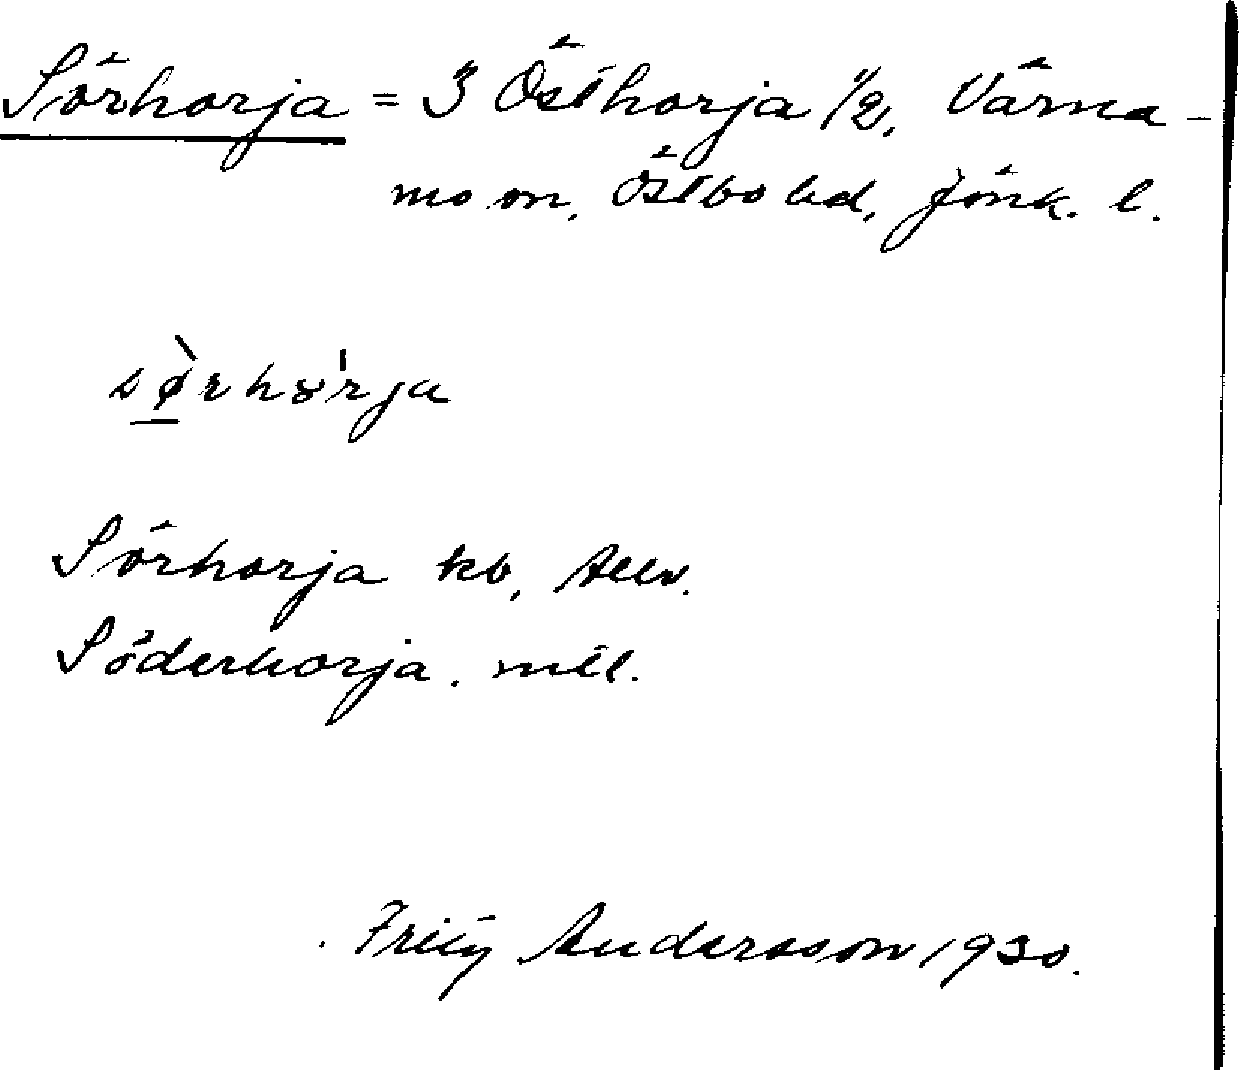 Sörhorja = 3 Östhorja 1/2, Värna-
mo sn, Östbo hd, Jönk. l.
sø̀rhɤrja
Sörhorja kb,
Söderhorja. mtl.
Fritz Andersson 1930.